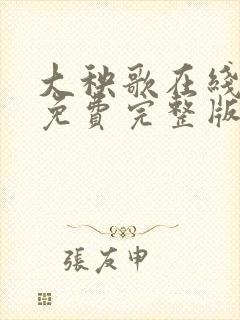 大秧歌在綫
免費完整版
張友申